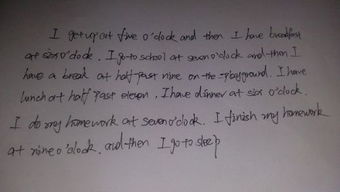 I get up at five o'clock and then I have breakfast
at six o'clock. I go to school at seven o'clock and then I
have a break at half past nine on the playground. I have
lunch at half past eleven, I have dinner at six o'clock.
I do my homework at seven o'clock. I finish my homework
at nine o'clock. and then I go to sleep